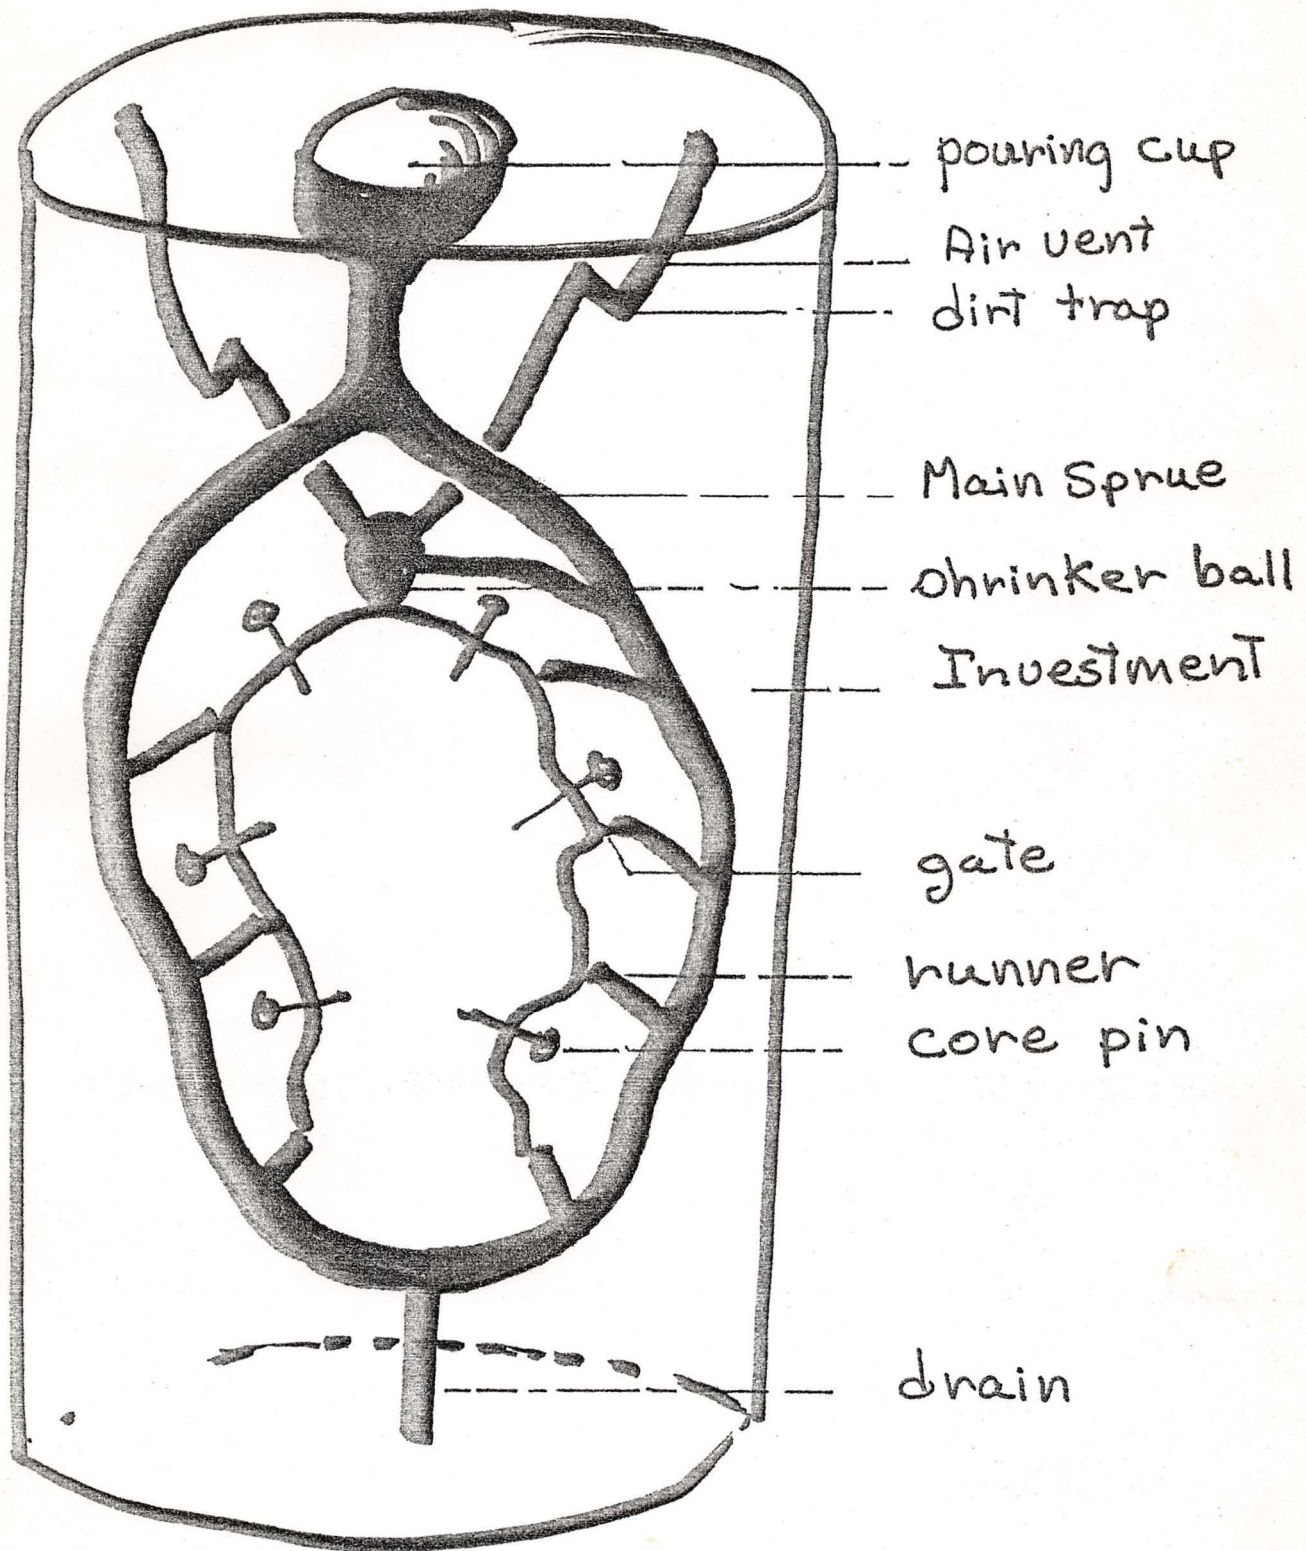 pouring cup
Air vent
dirt trap
Main Sprue
shrinker ball
Investment
gate
runner
core pin
drain